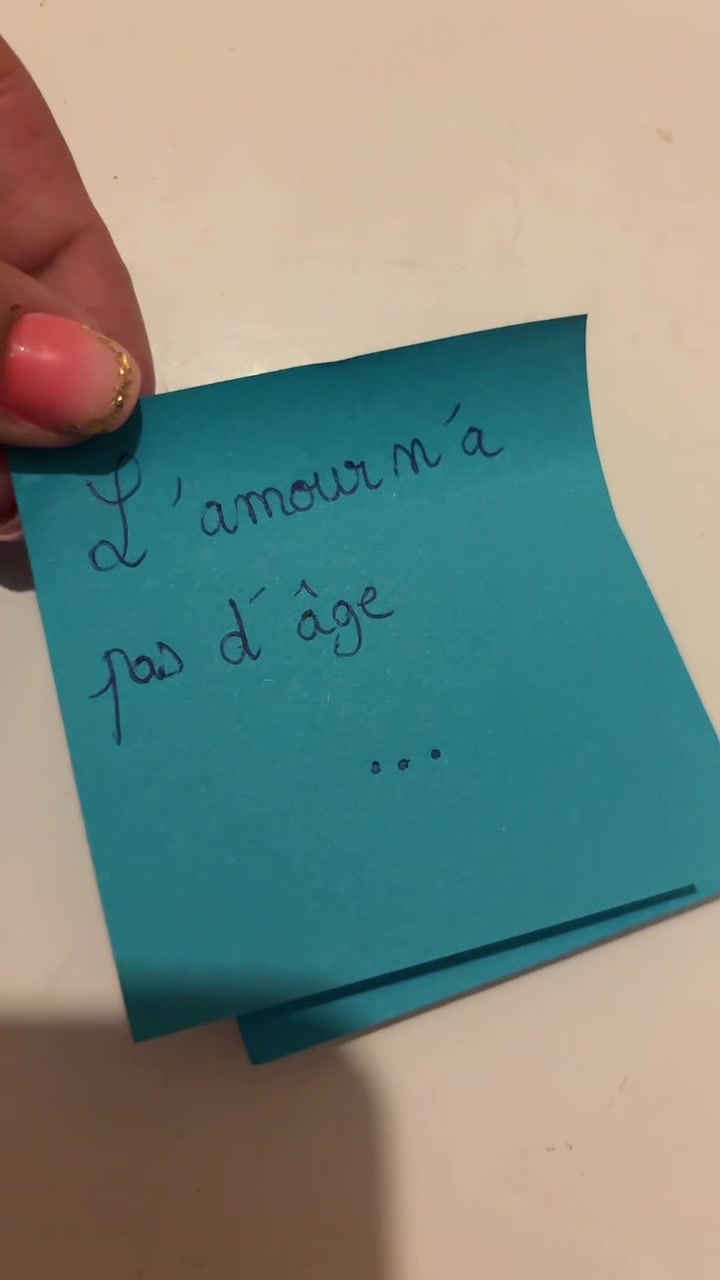 L'amour n'a
pas d'âge
...